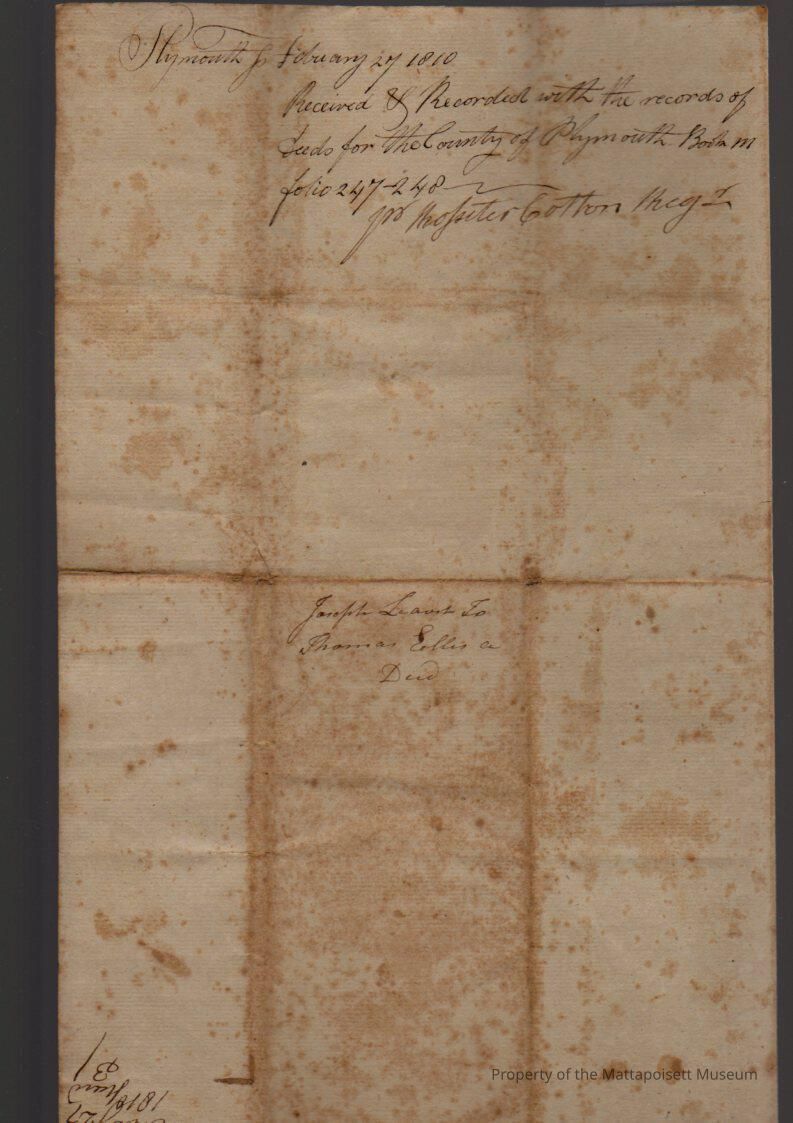 Plymouth ss February 27 1810
Received & Recorded with the records of
Deeds for the County of Plymouth Book
folio 247-248
pr Rossiter Cotton Regr
Joseph Leavit To
Thomas Ellis a
Deed
Property of the Mattapoisett Museum